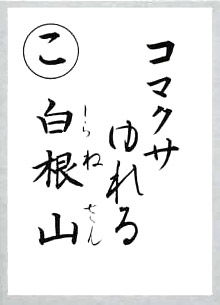 こ
コマクサ
ゆれる
白根山
しらねさん